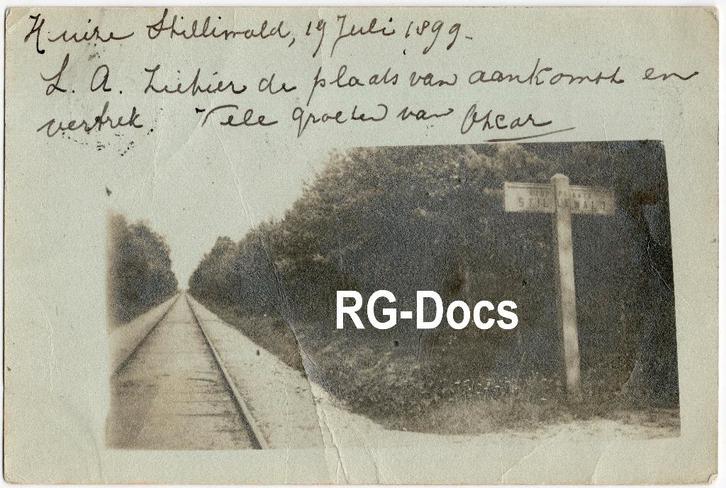 Huize Stilliwald, 19 Juli 1899.
L. A. Ziehier de plaats van aankomst en
vertrek. Vele groeten van Oscar
STILLIWALD
RG-Docs